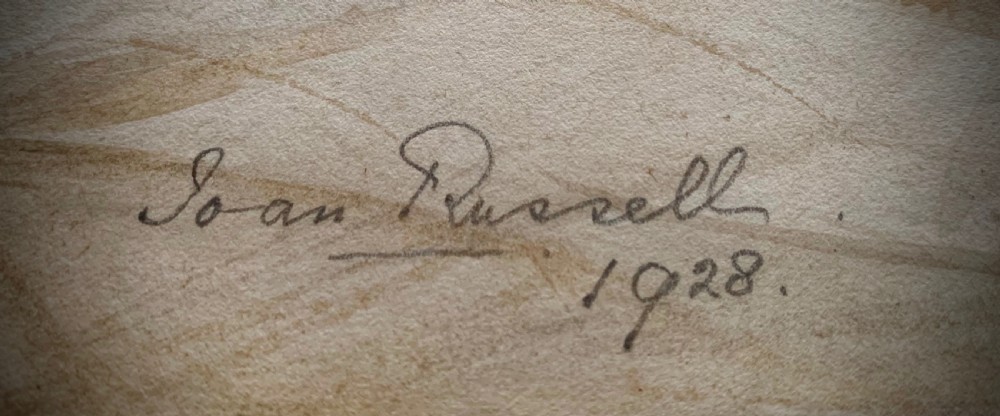 Joan Russell.
1928.